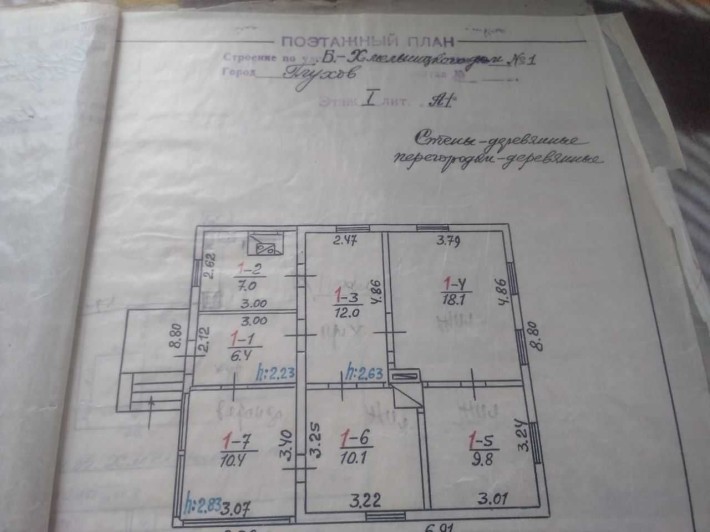 ПОЭТАЖНЫЙ ПЛАН
Строение по ул. Б.-Хмельницкого №1
Город Глухов
Этаж I лит. А1
Стены-деревянные
перегородки-деревянные
2.47 3.79
2.62 1-2 7.0 3.00
1-3 12.0 4.86
1-4 18.1 4.86
8.80 2.12 3.00 1-1 6.4 h:2.23
h:2.63 8.80
1-7 10.4 3.40 h:2.83 3.07
3.25 1-6 10.1 3.22
1-5 9.8 3.24 3.01
6.91